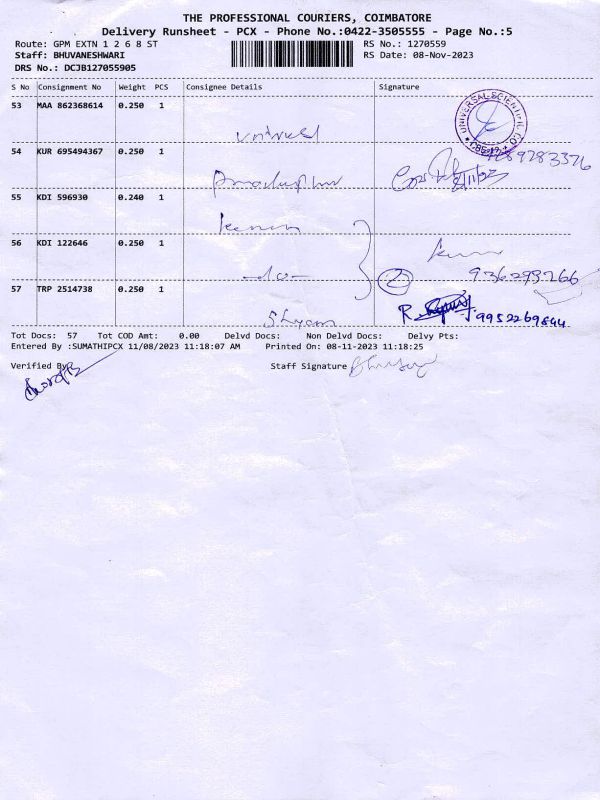 THE PROFESSIONAL COURIERS, COIMBATORE
Delivery Runsheet - PCX - Phone No.:0422-3505555 - Page No.:5
Route: GPM EXTN 1 2 6 8 ST RS No.: 1270559
Staff: BHUVANESHWARI RS Date: 08-Nov-2023
DRS No.: DCJB127055905
S No Consignment No Weight PCS Consignee Details Signature
53 MAA 862368614 0.250 1
UNIVERSAL SCIENTIFIC CO
54 KUR 695494367 0.250 1
8/11/23
55 KDI 596930 0.240 1
56 KDI 122646 0.250 1
-do- 2 936293266
57 TRP 2514738 0.250 1
Shyam R. 9952269844
Tot Docs: 57 Tot COD Amt: 0.00 Delvd Docs: Non Delvd Docs: Delvy Pts:
Entered By :SUMATHIPCX 11/08/2023 11:18:07 AM Printed On: 08-11-2023 11:18:25
Verified By Staff Signature